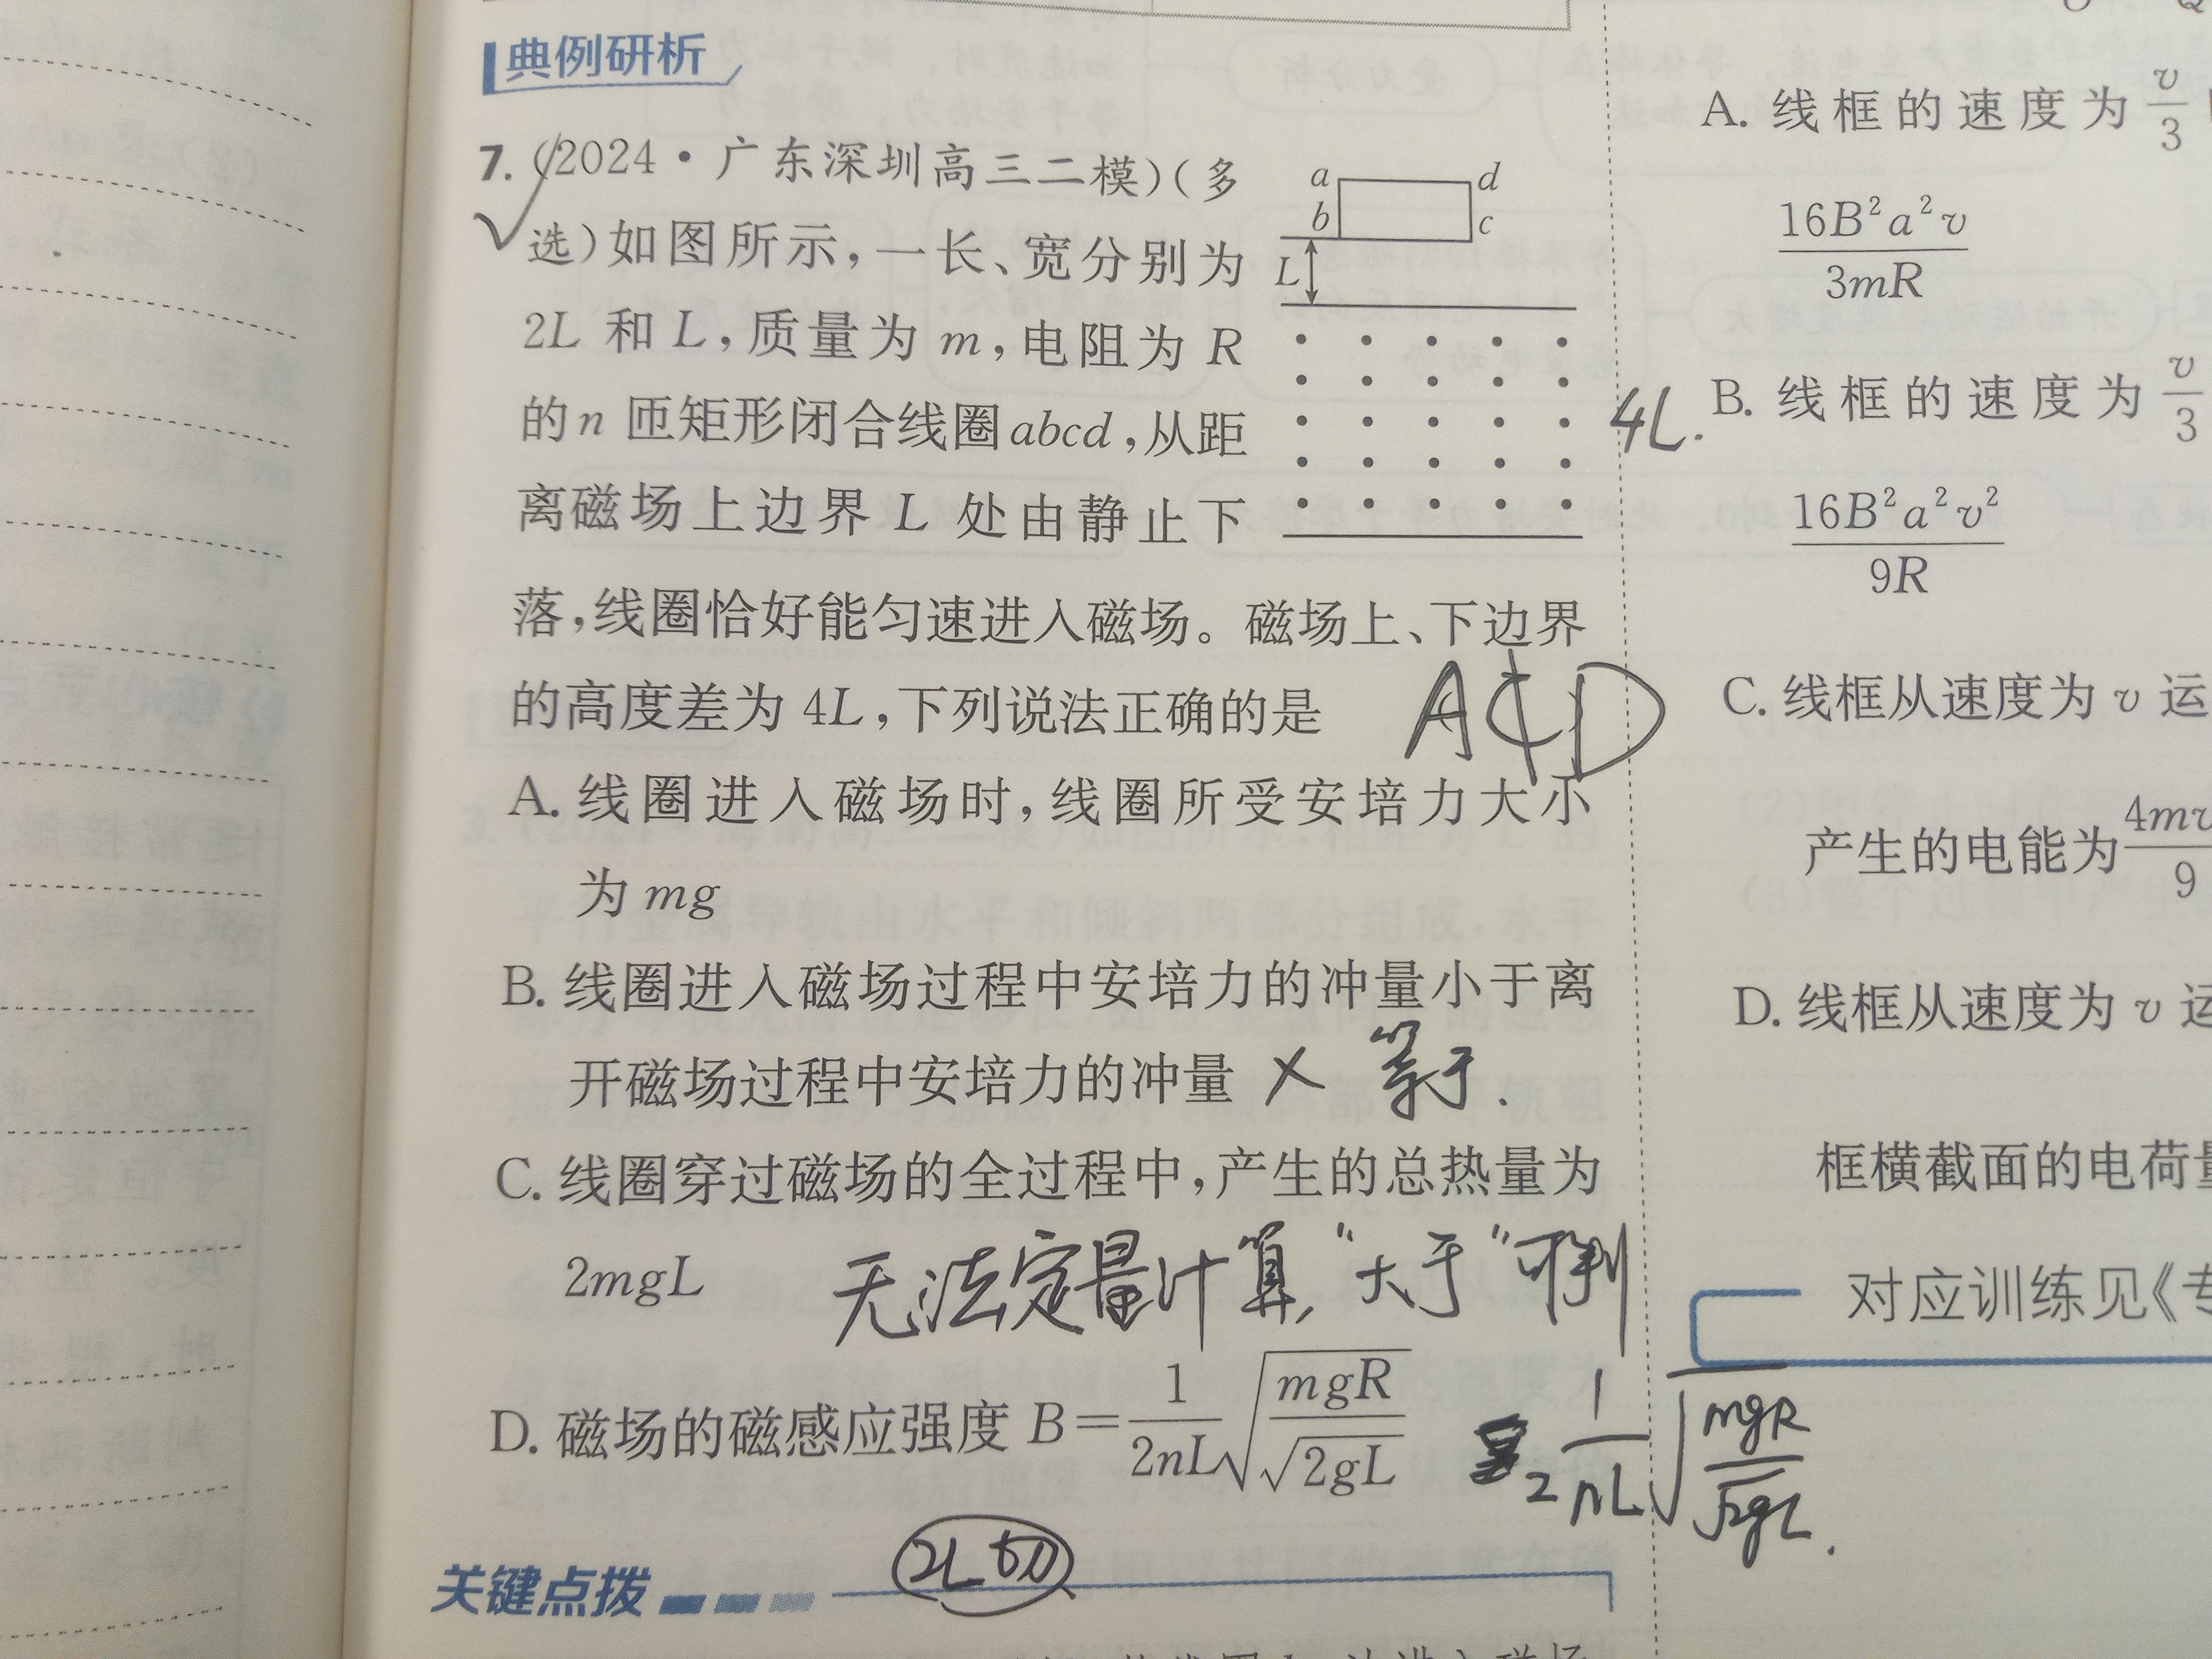 典例研析
7. (2024·广东深圳高三二模)(多
选)如图所示,一长、宽分别为
2L 和 L,质量为 m,电阻为 R
的 n 匝矩形闭合线圈 abcd,从距
离磁场上边界 L 处由静止下
落,线圈恰好能匀速进入磁场。磁场上、下边界
的高度差为 4L,下列说法正确的是
ACD
a
d
b
c
L
4L.
A. 线圈进入磁场时,线圈所受安培力大小
为 mg
B. 线圈进入磁场过程中安培力的冲量小于离
开磁场过程中安培力的冲量
× 等于.
C. 线圈穿过磁场的全过程中,产生的总热量为
2mgL
无法定量计算,“大于”可判
D. 磁场的磁感应强度 B=1/(2nL)√(mgR/√(2gL))
2 1/(nL)√(mgR/√(2gL)).
关键点拨
2L切
A. 线框的速度为 v/3
16B²a²v/(3mR)
B. 线框的速度为 v/3
16B²a²v²/(9R)
C. 线框从速度为 v 运
产生的电能为 4mv/9
D. 线框从速度为 v 运
框横截面的电荷量
对应训练见《专